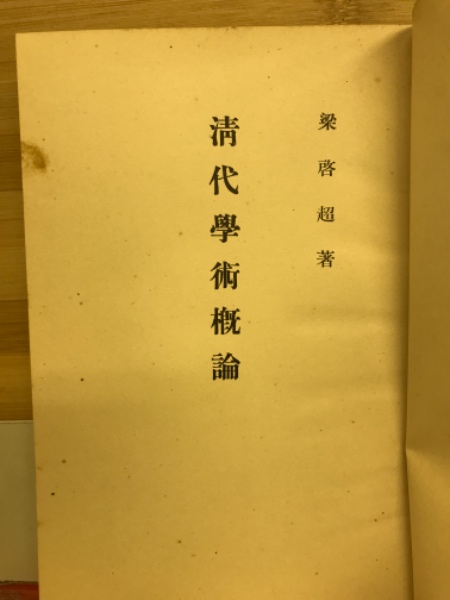 梁啓超著
清代學術概論